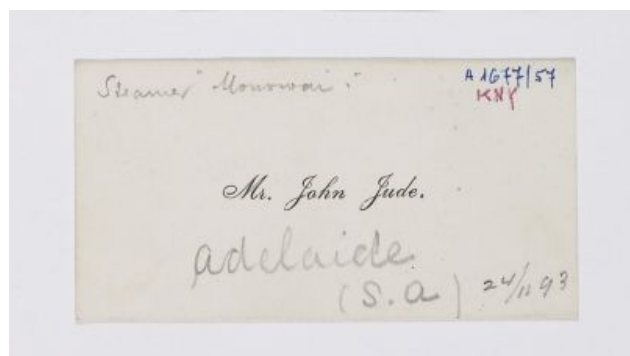 Steamer "Monowai".
A1677/57
KNY
Mr. John Jude.
adelaide
(S.a)
24/11 93